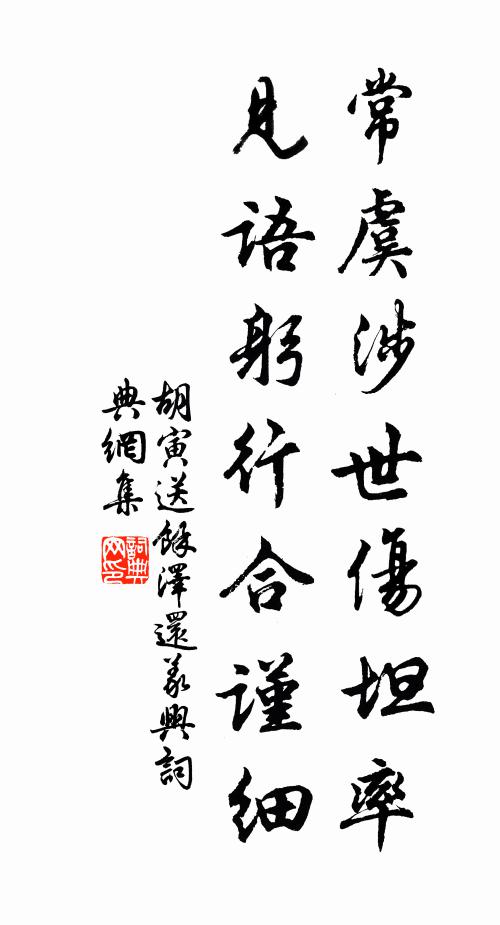 常虞涉世傷坦率
見語躬行合謹細
胡寅送餘澤還義興詞
典網集
詞典
网印